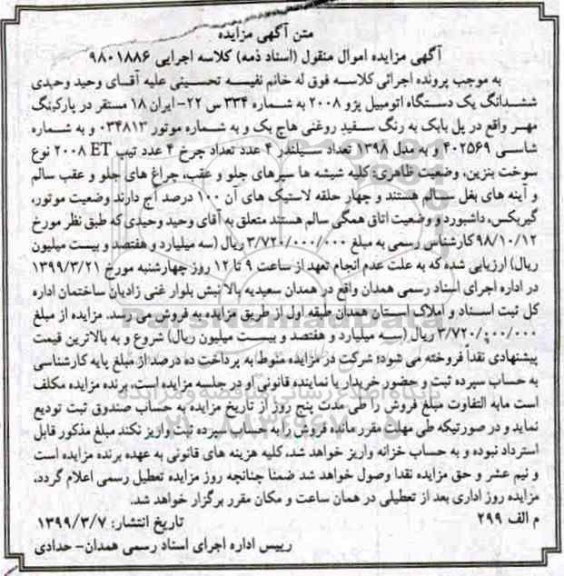 متن آگهی مزایده
آگهی مزایده اموال منقول (اسناد ذمه) کلاسه اجرایی ۹۸۰۱۸۸۶
به موجب پرونده اجرائی کلاسه فوق له خانم نفیسه تحسینی علیه آقای وحید وحیدی
ششدانگ یک دستگاه اتومبیل پژو ۲۰۰۸ به شماره ۳۳۴ س ۲۲- ایران ۱۸ مستقر در پارکینگ
مهر واقع در پل بابک به رنگ سفید روغنی هاچ بک و به شماره موتور ۰۳۴۸۱۲ و به شماره
شاسی ۴۰۲۵۶۹ و به مدل ۱۳۹۸ تعداد سیلندر ۴ عدد تعداد چرخ ۴ عدد تیپ ۲۰۰۸ ET نوع
سوخت بنزین، وضعیت ظاهری: کلیه شیشه ها سپرهای جلو و عقب، چراغ های جلو و عقب سالم
و آینه های بغل سالم هستند و چهار حلقه لاستیک های آن ۱۰۰ درصد آج دارند وضعیت موتور،
گیربکس، داشبورد و وضعیت اتاق همگی سالم هستند متعلق به آقای وحید وحیدی که طبق نظر مورخ
۹۸/۱۰/۱۲ کارشناس رسمی به مبلغ ۳/۷۲۰/۰۰۰/۰۰۰ ریال (سه میلیارد و هفتصد و بیست میلیون
ریال) ارزیابی شده که به علت عدم انجام تعهد از ساعت ۹ تا ۱۲ روز چهارشنبه مورخ ۱۳۹۹/۳/۲۱
در اداره اجرای اسناد رسمی همدان واقع در همدان سعیدیه بالا نبش بلوار غنی زادیان ساختمان اداره
کل ثبت اسناد و املاک استان همدان طبقه اول از طریق مزایده به فروش می رسد. مزایده از مبلغ
۳/۷۲۰/۰۰۰/۰۰۰ ریال (سه میلیارد و هفتصد و بیست میلیون ریال) شروع و به بالاترین قیمت
پیشنهادی نقداً فروخته می شود؛ شرکت در مزایده منوط به پرداخت ده درصد از مبلغ پایه کارشناسی
به حساب سپرده ثبت و حضور خریدار یا نماینده قانونی او در جلسه مزایده است، برنده مزایده مکلف
است مابه التفاوت مبلغ فروش را طی مدت پنج روز از تاریخ مزایده به حساب صندوق ثبت تودیع
نماید و در صورتیکه طی مهلت مقرر مانده فروش را به حساب سپرده ثبت واریز نکند مبلغ مذکور قابل
استرداد نبوده و به حساب خزانه واریز خواهد شد، کلیه هزینه های قانونی به عهده برنده مزایده است
و نیم عشر و حق مزایده نقدا وصول خواهد شد ضمنا چنانچه روز مزایده تعطیل رسمی اعلام گردد،
مزایده روز اداری بعد از تعطیلی در همان ساعت و مکان مقرر برگزار خواهد شد.
م الف ۲۹۹ تاریخ انتشار: ۱۳۹۹/۳/۷
رییس اداره اجرای اسناد رسمی همدان- حدادی
ParsNamadData
پایگاه اطلاع رسانی مناقصه و مزایده